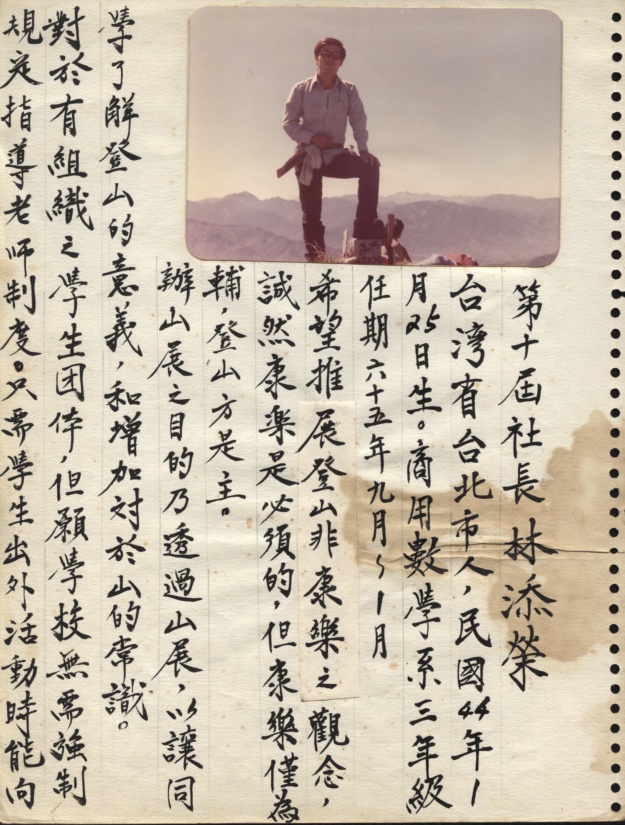 第十屆社長林添榮
台湾省台北市人，民國44年1
月25日生。商用數學系三年級
任期六十五年九月～1月
希望推展登山非康樂之觀念，
誠然康樂是必須的，但康樂僅為
輔，登山方是主。
辦山展之目的乃透過山展，以讓同
學了解登山的意義，和增加对於山的常識。
對於有組織之學生団体，但願學校無需強制
規定指導老师制度。只需學生出外活動時能向